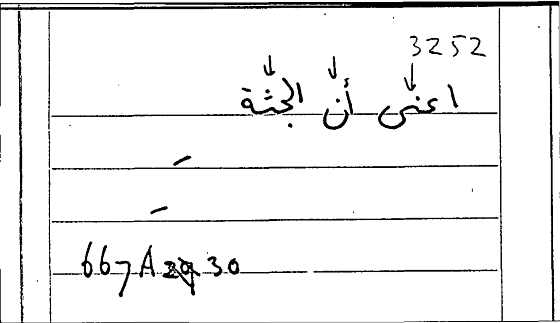 3252
اعنى أن الجثة
667A 30